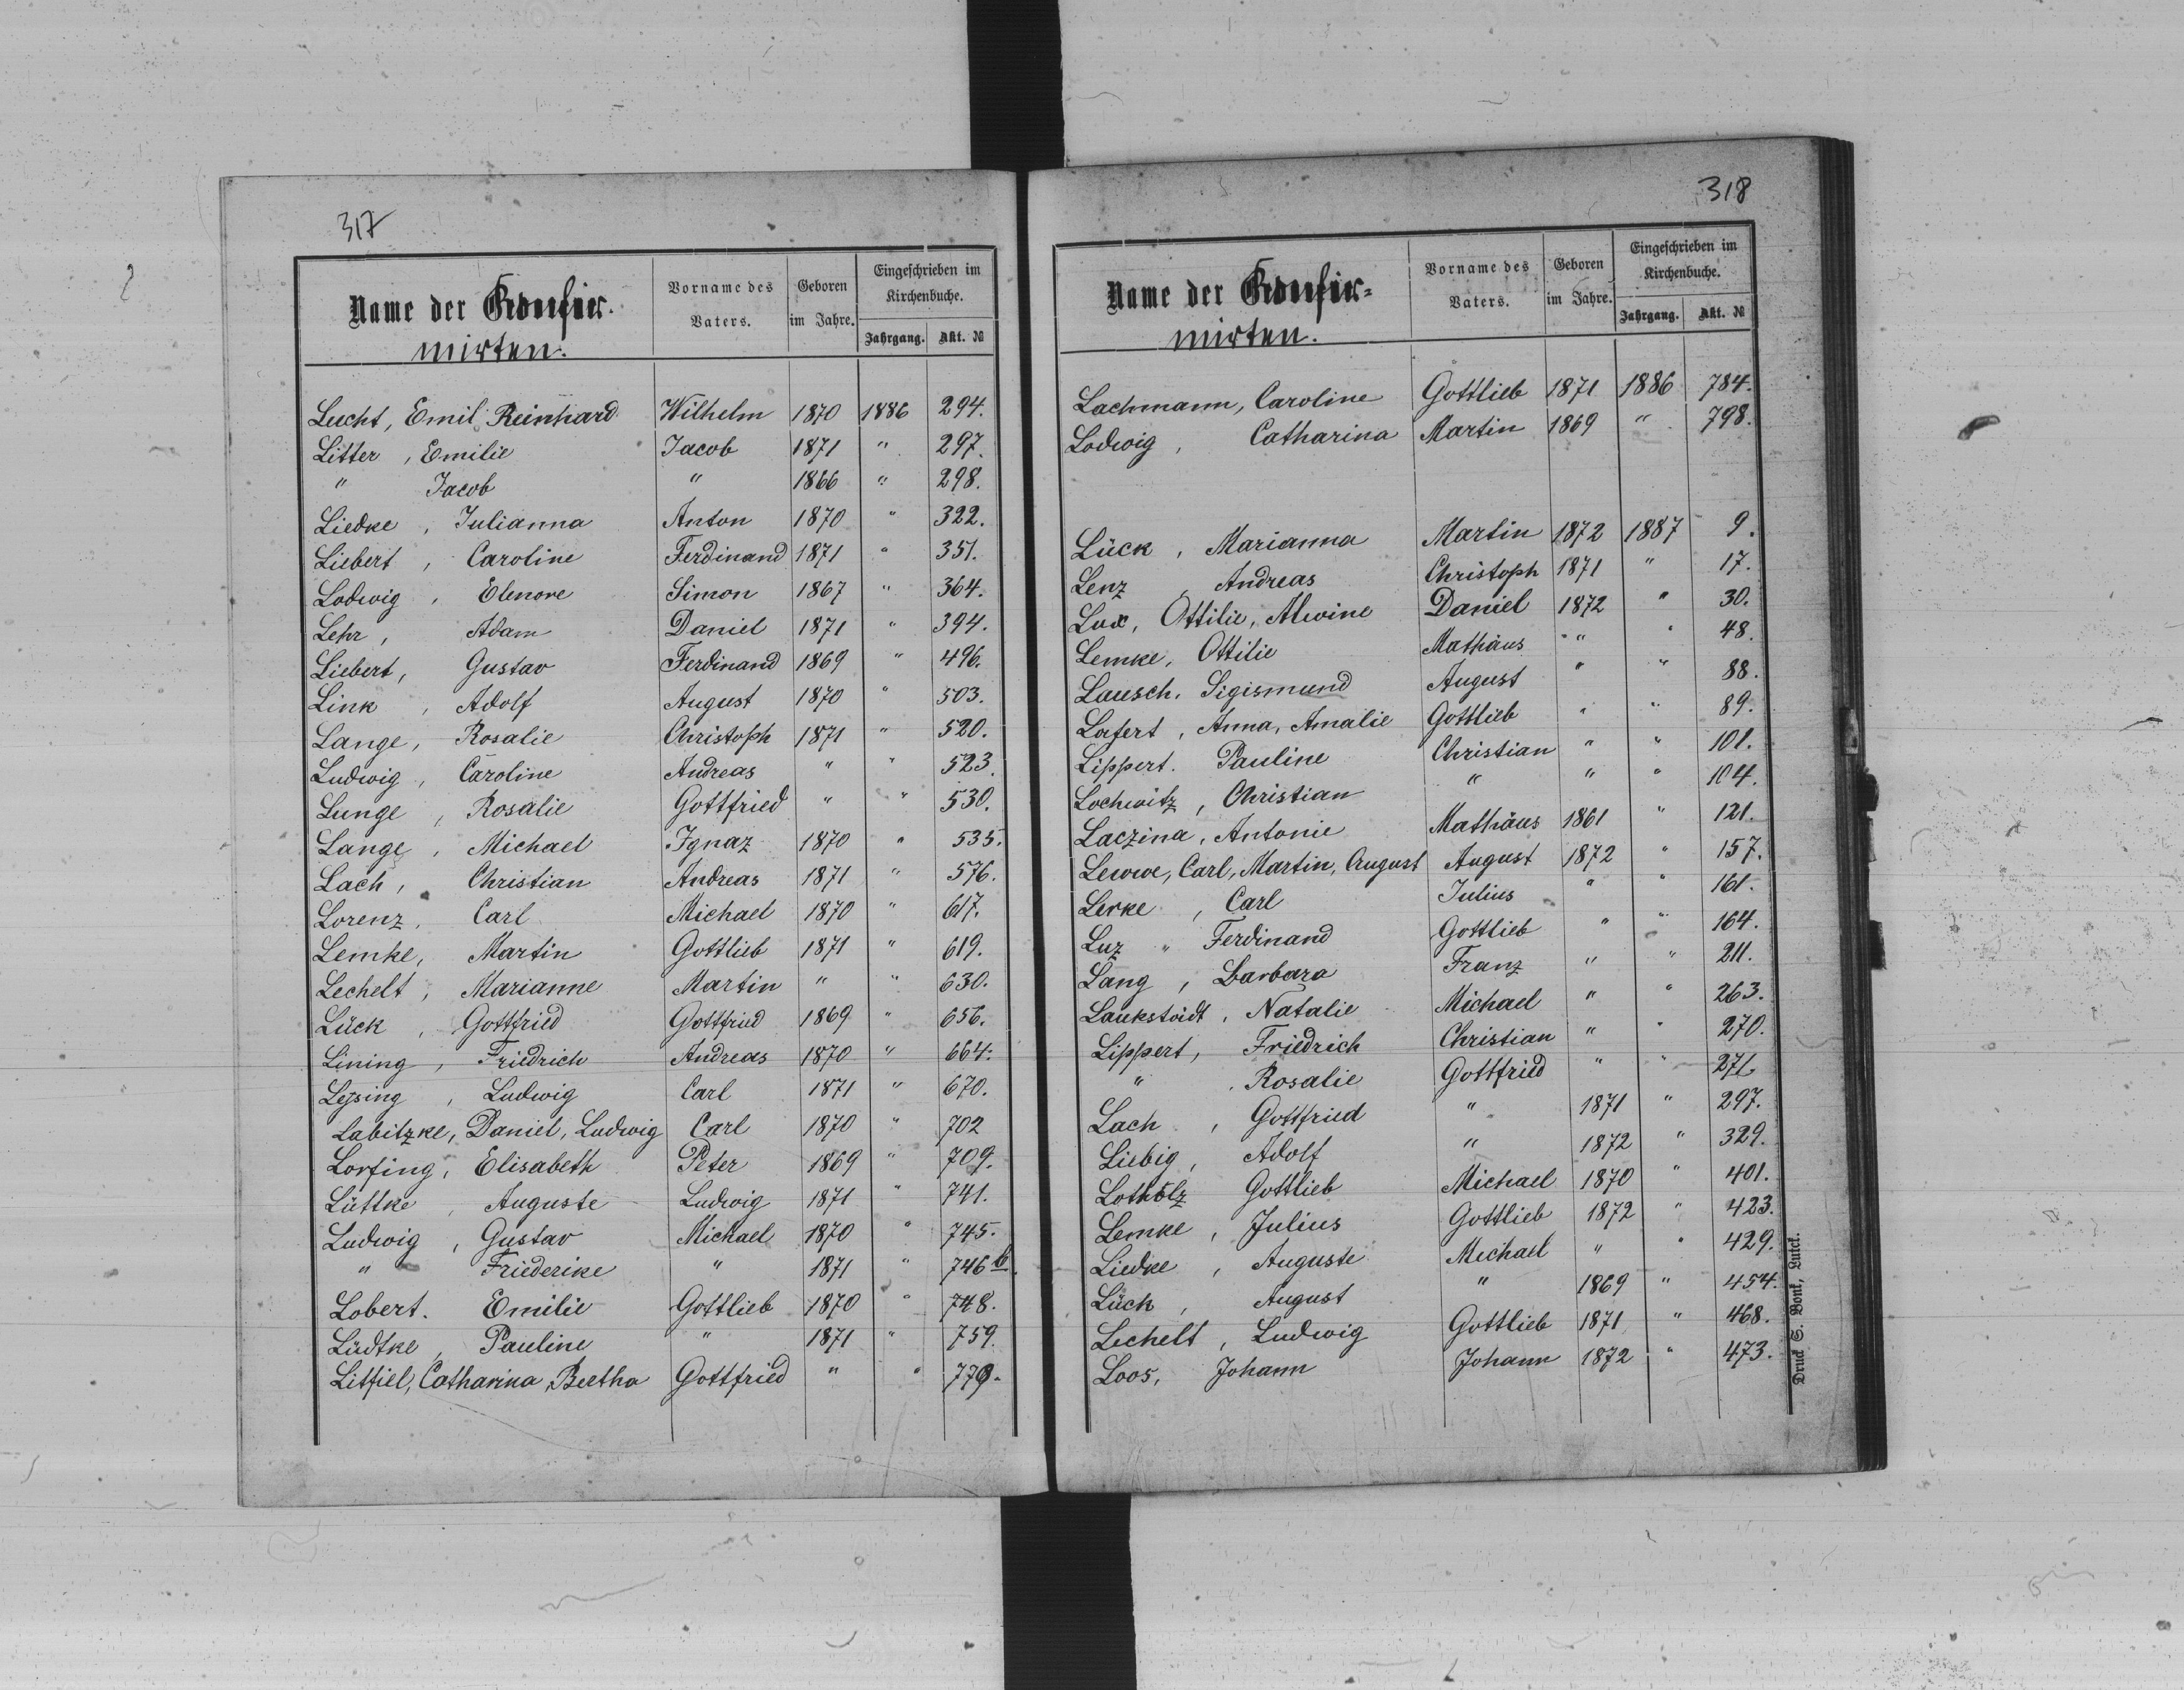 317
Name der Konfir-
mirten.
Vorname des Vaters.
Geboren im Jahre.
Eingeschrieben im Kirchenbuche.
Jahrgang. Akt. №
Lucht, Emil Reinhard Wilhelm 1870 1886 294.
Litter, Emilie Jacob 1871 " 297.
" Jacob " 1866 " 298.
Liedke, Julianna Anton 1870 " 322.
Liebert, Caroline Ferdinand 1871 " 351.
Lodwig, Elenore Simon 1867 " 364.
Lehr, Adam Daniel 1871 " 394.
Liebert, Gustav Ferdinand 1869 " 496.
Link, Adolf August 1870 " 503.
Lange, Rosalie Christoph 1871 " 520.
Ludwig, Caroline Andreas " " 523.
Lunge, Rosalie Gottfried " " 530.
Lange, Michael Ignaz 1870 " 535.
Lach, Christian Andreas 1871 " 576.
Lorenz, Carl Michael 1870 " 617.
Lemke, Martin Gottlieb 1871 " 619.
Lechelt, Marianne Martin " " 630.
Lück, Gottfried Gottfried 1869 " 656.
Lining, Friedrich Andreas 1870 " 664.
Leysing, Ludwig Carl 1871 " 670.
Labitzke, Daniel, Ludwig Carl 1870 " 702
Lorfing, Elisabeth Peter 1869 " 709.
Lüttke, Auguste Ludwig 1871 " 741.
Ludwig, Gustav Michael 1870 " 745.
" Friederike " 1871 " 746 b.
Lobert. Emilie Gottlieb 1870 " 748.
Lüdtke, Pauline " 1871 " 759.
Litfiel, Catharina, Bertha Gottfried " " 779.
318
Name der Konfir-
mirten.
Vorname des Vaters.
Geboren im Jahre.
Eingeschrieben im Kirchenbuche.
Jahrgang. Akt. №
Lachmann, Caroline Gottlieb 1871 1886 784.
Lodwig, Catharina Martin 1869 " 798.
Lück, Marianna Martin 1872 1887 9.
Lenz, Andreas Christoph 1871 " 17.
Lux, Ottilie, Alwine Daniel 1872 " 30.
Lemke, Ottilie Mathäus " " 48.
Lausch, Sigismund August " " 88.
Lafert, Anna, Amalie Gottlieb " " 89.
Lippert. Pauline Christian " " 101.
Lochwitz, Christian " " " 104.
Laczina, Antonie Mathäus 1861 " 121.
Lewwe, Carl, Martin, August August 1872 " 157.
Lerke, Carl Julius " " 161.
Luz " Ferdinand Gottlieb " " 164.
Lang, Barbara Franz " " 211.
Laukstädt, Natalie Michael " " 263.
Lippert, Friedrich Christian " " 270.
" Rosalie Gottfried " " 271.
Lach, Gottfried " 1871 " 297.
Liebig, Adolf " 1872 " 329.
Lotholz Gottlieb Michael 1870 " 401.
Lemke, Julius Gottlieb 1872 " 423.
Liedke, Auguste Michael " " 429.
Lück, August " 1869 " 454.
Lechelt, Ludwig Gottlieb 1871 " 468.
Loos, Johann Johann 1872 " 473.
Druck S. Bonk, Lutck.